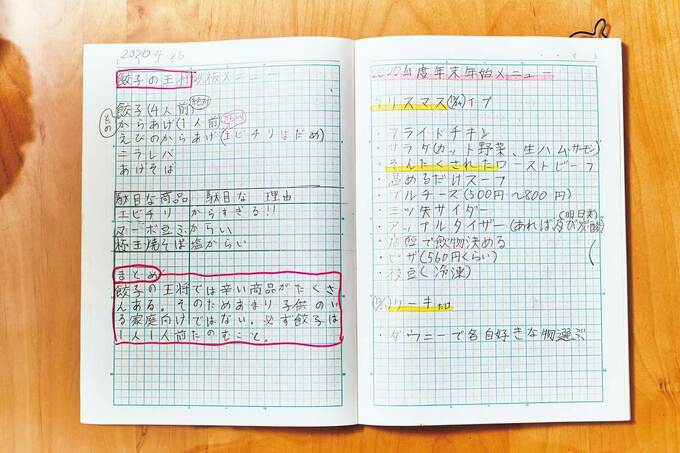 2020 4 26
餃子の王将鉄板メニュー
餃子(4人前)絶対
からあげ(1人前)
えびのからあげ(エビチリはだめ)
ニラレバ
あげそば
その
駄目な商品 駄目な 理由
エビチリ からすぎる!!
マーボ豆ふ からい
極王焼そば 塩からい
まとめ
餃子の王将では辛い商品がたくさ
んある。そのためあまり子供のい
る家庭向けではない。必ず餃子は
1人1人前たのむこと。
2020年度年末年始メニュー
クリスマス(12/24)イブ
・フライドチキン
・サラダ(カット野菜、生ハム、サーモン)
・そんたくされたローストビーフ
・温めるだけスープ
・ブルチーズ(500円〜800円)
・三ツ矢サイダー
・アップルタイザー(あれば皮び炭酸)
(明日来)
・店頭で飲物決める
・ピザ(560円くらい)
・枝豆(冷凍)
ケーキ
・ダウニーで各自好きな物選ぶ